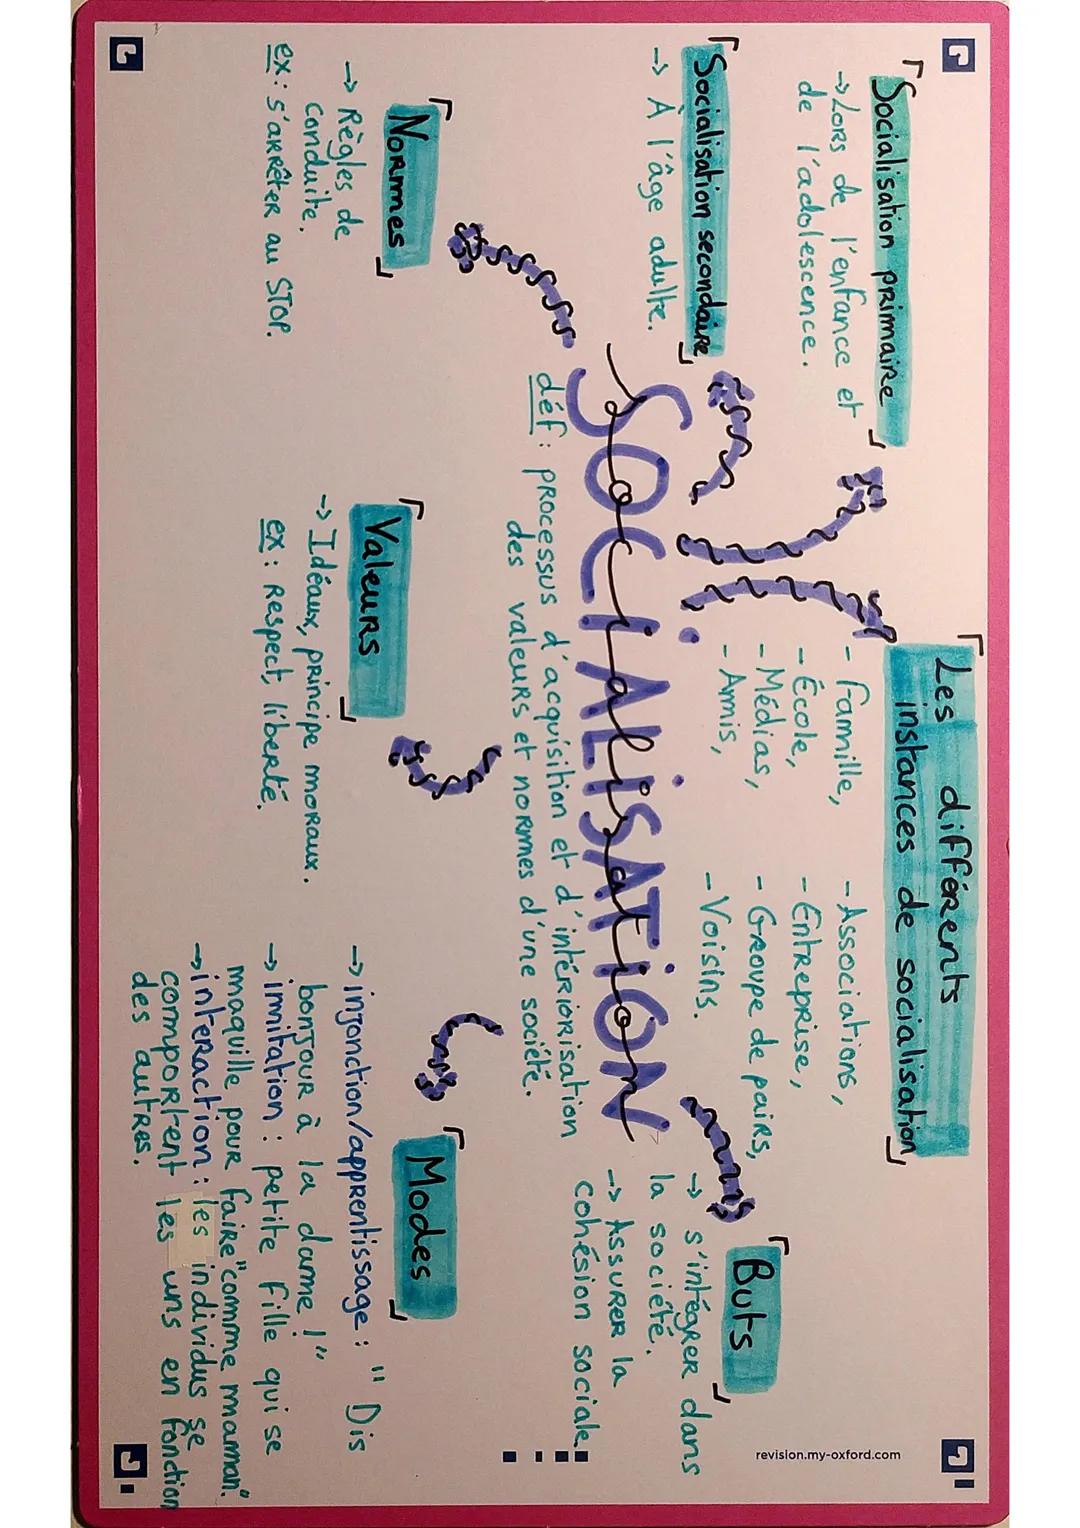 Socialisation primaire
→ Lors de l'enfance et
de l'adolescence.
Socialisation secondaire
→ À l'âge adulte.
Les différents
instances de socialisation
- Famille,
- École,
- Médias,
- Amis,
- Associations,
- Entreprise,
- Groupe de pairs,
- Voisins.
Buts
→ s'intégrer dans
la société.
→ Assurer la
cohésion sociale.
SOCIALISATION
Socialisation
déf : processus d'acquisition et d'intériorisation
des valeurs et normes d'une société.
Normes
→ Règles de
conduite.
ex : s'arrêter au STOP.
Valeurs
→ Idéaux, principe moraux.
ex : Respect, liberté.
Modes
→ injonction/apprentissage : " Dis
bonjour à la dame !"
→ imitation : petite fille qui se
maquille pour faire "comme maman"
→ interaction : les individus se
comportent les uns en fonction
des autres.
revision.my-oxford.com